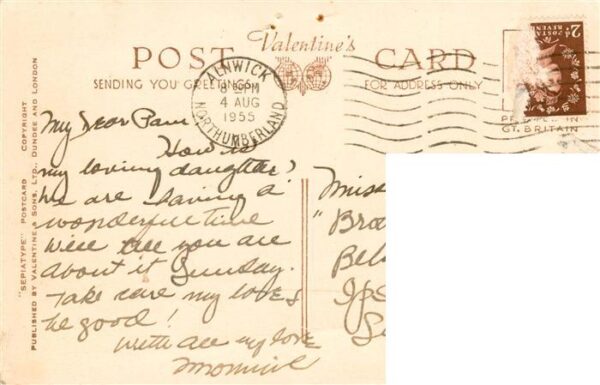 Valentine's
POST CARD
SENDING YOU GREETINGS
FOR ADDRESS ONLY
ALNWICK
PM
4 AUG
1955
NORTHUMBERLAND
POSTAGE
REVENUE
2D
IN
GT. BRITAIN
"SEPIATYPE" POSTCARD COPYRIGHT
PUBLISHED BY VALENTINE & SONS, LTD., DUNDEE AND LONDON
My Dear Pam
How is
my loving daughter?
We are having a
wonderful time
will all you are
about it Sunday.
Take care my love &
be good!
With all my love
Miss
"Bro
Bel
Ips